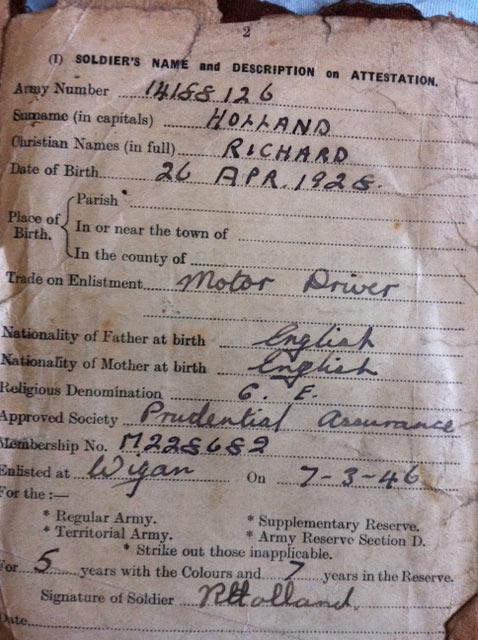 2
(1) SOLDIER'S NAME and DESCRIPTION on ATTESTATION.
Army Number 14188126
Surname (in capitals) HOLLAND
Christian Names (in full) RICHARD
Date of Birth 26 APR. 1928.
Place of Birth.
Parish
In or near the town of
In the county of
Trade on Enlistment Motor Driver
Nationality of Father at birth English
Nationality of Mother at birth English
Religious Denomination C. E.
Approved Society Prudential Assurance
Membership No. M228682
Enlisted at Wigan On 7-3-46
For the :—
* Regular Army. * Supplementary Reserve.
* Territorial Army. * Army Reserve Section D.
* Strike out those inapplicable.
For 5 years with the Colours and 7 years in the Reserve.
Signature of Soldier RHolland.
Date